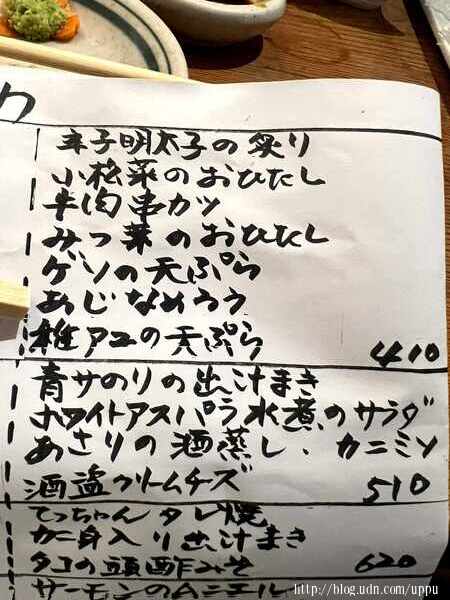 辛子明太子の炙り
小松菜のおひたし
牛肉串カツ
みつ葉のおひたし
ゲソの天ぷら
あじなめろう
稚アユの天ぷら 410
青サのりの出汁まき
ホワイトアスパラ水煮のサラダ
あさりの酒蒸し、カニミソ
酒盗クリームチーズ 510
てっちゃんタレ焼
カニ身入り出汁まき
タコの頭酢みそ 620
サーモンのムニエル
http://blog.udn.com/uppu